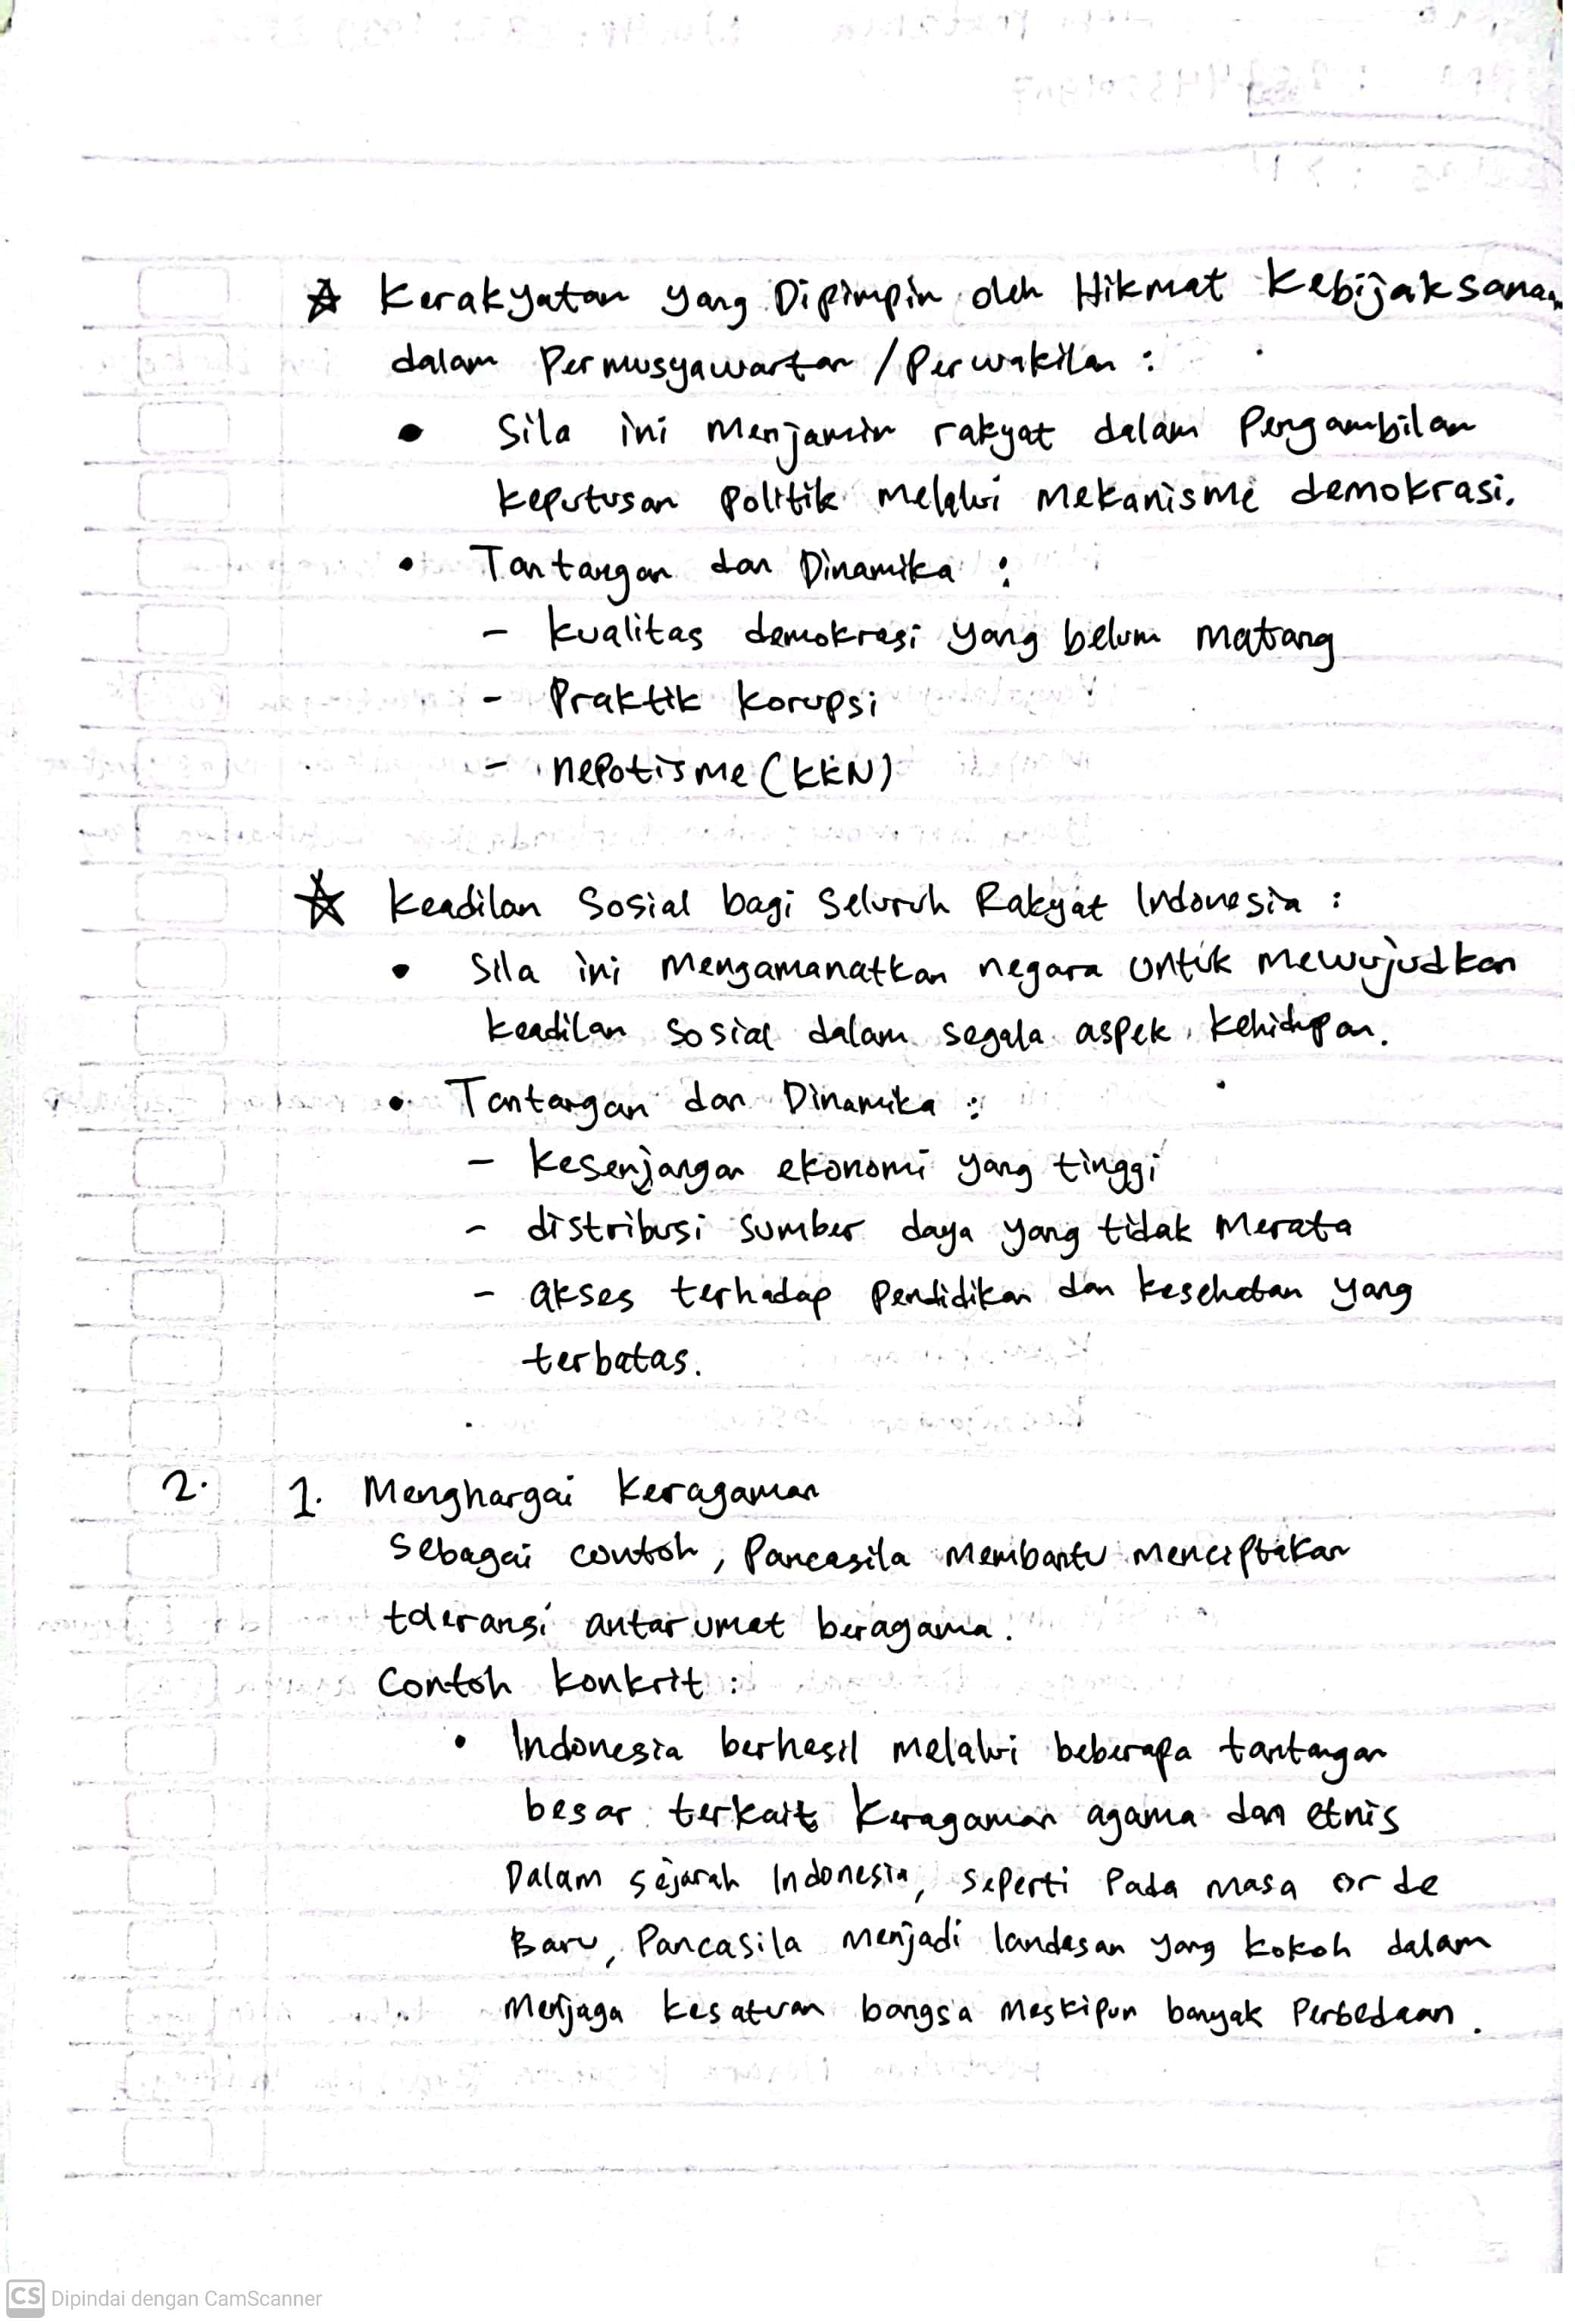 ☆ Kerakyatan yang Dipimpin oleh Hikmat Kebijaksanaan
dalam Permusyawartan / Perwakilan :
• Sila ini menjamin rakyat dalam Pengambilan
keputusan politik melalui mekanisme demokrasi.
• Tantangan dan Dinamika :
- kualitas demokrasi yang belum matang
- Praktik korupsi
- nepotisme (KKN)
☆ Keadilan Sosial bagi Seluruh Rakyat Indonesia :
• Sila ini mengamanatkan negara untuk mewujudkan
keadilan sosial dalam segala aspek kehidupan.
• Tantangan dan Dinamika :
- kesenjangan ekonomi yang tinggi
- distribusi sumber daya yang tidak merata
- akses terhadap pendidikan dan kesehatan yang
terbatas.
2. 1. Menghargai keragaman
Sebagai contoh, Pancasila membantu menciptakan
toleransi antar umat beragama.
Contoh konkrit :
• Indonesia berhasil melalui beberapa tantangan
besar terkait keragaman agama dan etnis
Dalam sejarah Indonesia, seperti Pada masa orde
Baru, Pancasila menjadi landasan yang kokoh dalam
menjaga kesatuan bangsa meskipun banyak Perbedaan.
CS Dipindai dengan CamScanner